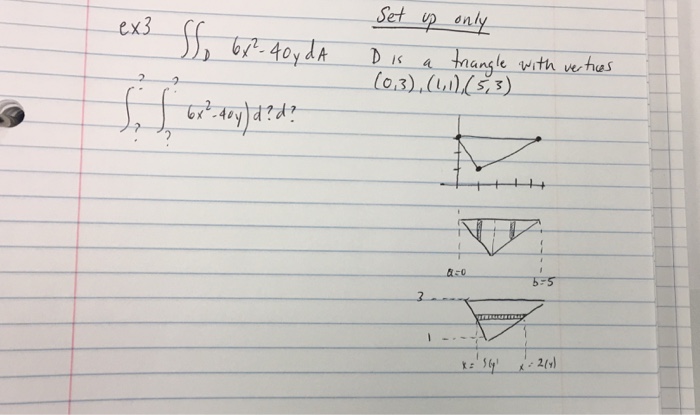 ex3 ∫∫_D 6x²-40y dA
Set up only
D is a triangle with vertices
(0,3), (1,1), (5,3)
∫_?^? ∫_?^? 6x²-40y) d? d?
a=0
b=5
3
1
x=
x=